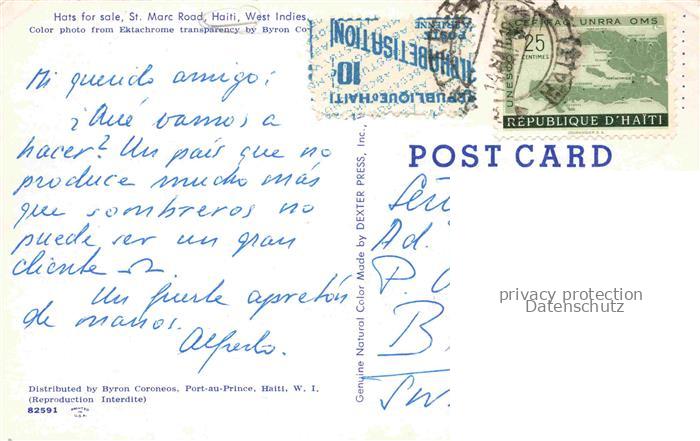 Hats for sale, St. Marc Road, Haiti, West Indies.
Color photo from Ektachrome transparency by Byron Co
POSTE AERIENNE
ALPHABETISATION
10
REPUBLIQUE D'HAITI
UNESCO UNICEF FAO UNRRA OMS
25
CENTIMES
RÉPUBLIQUE D'HAÏTI
Mi querido amigo:
¿Qué vamos a
hacer? Un país que no
produce mucho más
que sombreros no
puede ser un gran
cliente
Un fuerte apretón
de manos.
Alfredo.
Genuine Natural Color Made by DEXTER PRESS, Inc.,
POST CARD
Señ
Ad.
P. O
B.
Sw.
privacy protection
Datenschutz
Distributed by Byron Coroneos, Port-au-Prince, Haiti, W. I.
(Reproduction Interdite)
82591 PRINTED IN U.S.A.